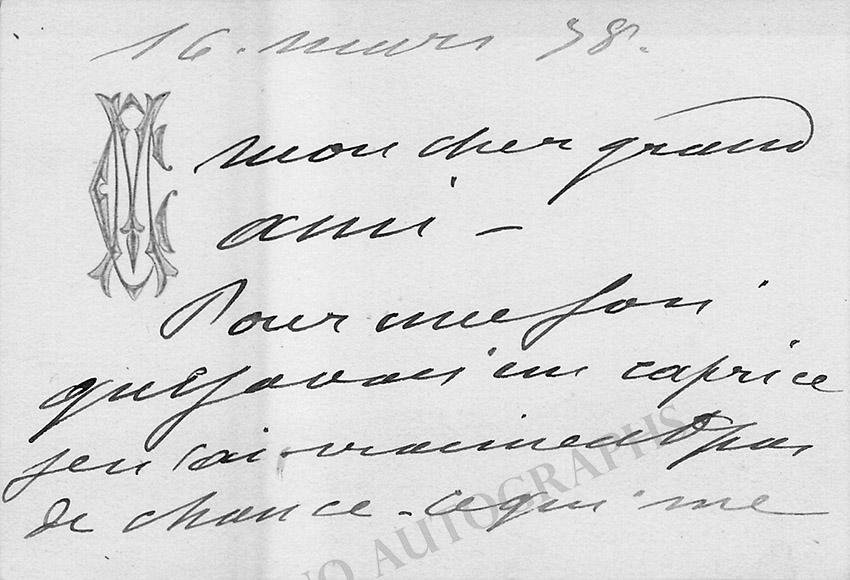 16. mars 78.
mon cher grand
ami –
Pour une fois
que j'avais un caprice
je n'ai vraiment pas
de chance – ce qui me
AUTOGRAPHS